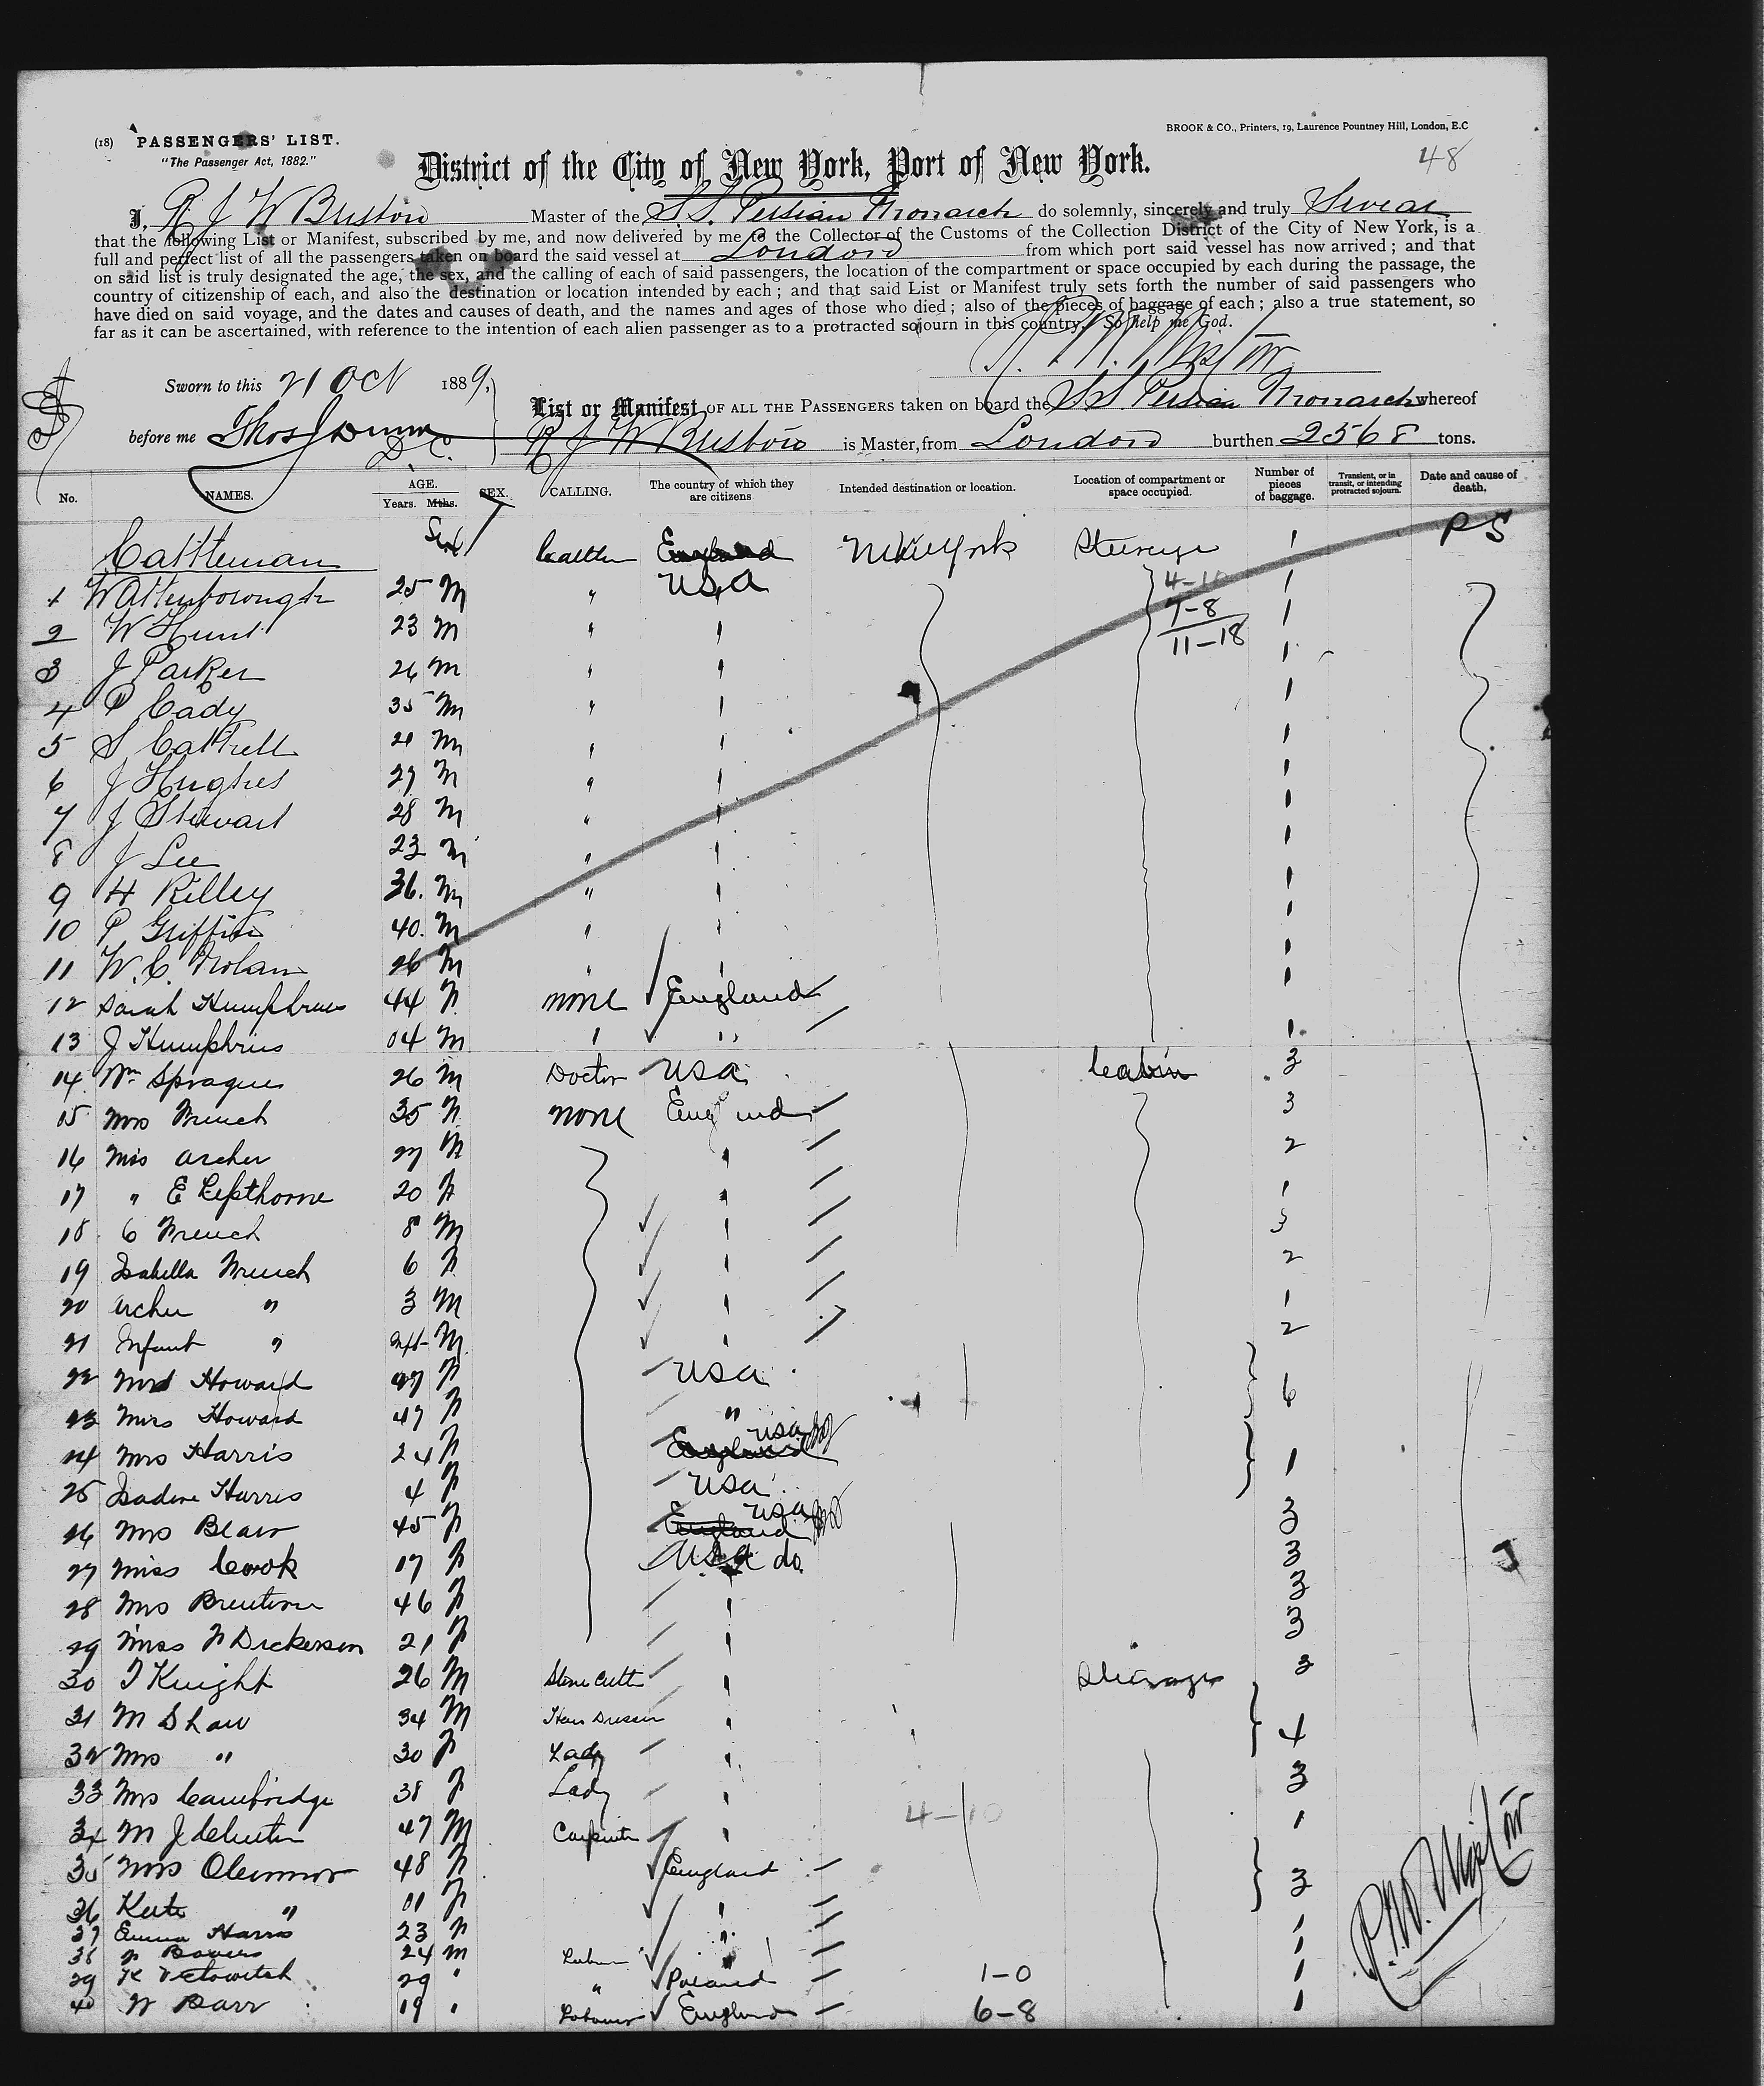 (18) PASSENGERS' LIST.
"The Passenger Act, 1882."
BROOK & CO., Printers, 19, Laurence Pountney Hill, London, E.C
48
District of the City of New York, Port of New York.
I, R J W Bristow Master of the S.S. Persian Monarch do solemnly, sincerely and truly Swear
that the following List or Manifest, subscribed by me, and now delivered by me to the Collector of the Customs of the Collection District of the City of New York, is a
full and perfect list of all the passengers taken on board the said vessel at London from which port said vessel has now arrived; and that
on said list is truly designated the age, the sex, and the calling of each of said passengers, the location of the compartment or space occupied by each during the passage, the
country of citizenship of each, and also the destination or location intended by each; and that said List or Manifest truly sets forth the number of said passengers who
have died on said voyage, and the dates and causes of death, and the names and ages of those who died; also of the pieces of baggage of each; also a true statement, so
far as it can be ascertained, with reference to the intention of each alien passenger as to a protracted sojourn in this country. So help me God.
Sworn to this 21 Oct 1889,
List or Manifest OF ALL THE PASSENGERS taken on board the SS Persian Monarch whereof
before me Thos J Dunn D.C. R J W Bristow is Master, from London burthen 2568 tons.
No. NAMES. AGE. Years. Mths. SEX. CALLING. The country of which they are citizens Intended destination or location. Location of compartment or space occupied. Number of pieces of baggage. Transient, or in transit, or intending protracted sojourn. Date and cause of death.
Cattleman Sex Cattlm England New York Steerage 1 PS
1 W Attenborough 25 M " USA 4-10 1
2 W Hunt 23 M " " 7-8 1
11-18
3 J Parker 26 M " " 1
4 P Cady 35 M " " 1
5 S Cattrell 21 M " " 1
6 J Hughes 27 M " " 1
7 J Stewart 28 M " " 1
8 J Lee 23 M " " 1
9 H Killey 36. M " " 1
10 P Griffin 40. M " " 1
11 W. C. Nolan 26 M " " 1
12 Sarah Humphries 44 F none England 1
13 J Humphries 04 M " " 1
14 Wm Sprague 26 M Doctor USA Cabin 3
15 Mrs French 35 F none England 3
16 Miss Archer 27 F " 2
17 " E Lepthorne 20 F " 1
18 C French 8 M " 3
19 Isabella French 6 F " 2
20 Archer " 3 M " 1
21 Infant " Inft M " 2
22 Mrs Howard 47 F USA 6
23 Miss Howard 47 F "
24 Mrs Harris 24 F England USA 1
25 Isadore Harris 4 F USA
26 Mrs Blair 45 F England USA 3
27 Miss Cook 17 F USA do. 3
28 Mrs 46 F " 3
29 Miss F Dickerson 21 F " 3
30 T Knight 26 M Stone Cutter " Steerage 3
31 M Shaw 34 M Hair Dresser " 4
32 Mrs " 30 F Lady "
33 Mrs Cambridge 38 F Lady " 3
4-10
34 M J 47 M Carpenter " 1
35 Mrs OConnor 48 F England 3
36 Kate " 11 F "
37 Emma Harris 23 F " 1
38 F Bowers 24 M Labor " 1
39 K 29 " " Poland 1-0 1
40 W Barr 19 " Labourer England 6-8 1